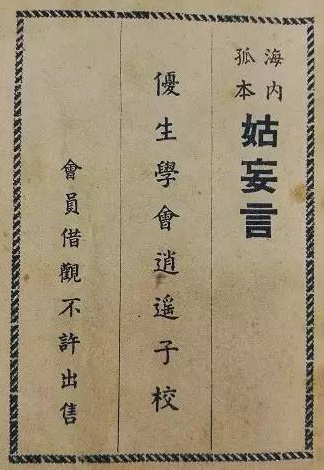 海内孤本
姑妄言
優生學會逍遥子校
會員借觀不許出售